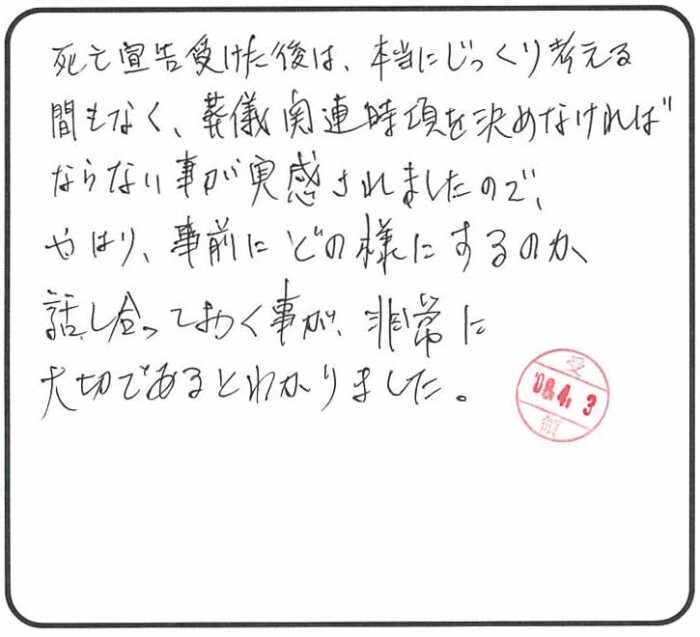 死亡宣告受けた後は、本当にじっくり考える
間もなく、葬儀関連時項を決めなければ
ならない事が実感されましたので、
やはり、事前にどの様にするのか、
話し合っておく事が、非常に
大切であるとわかりました。
受
'08.4.3
領